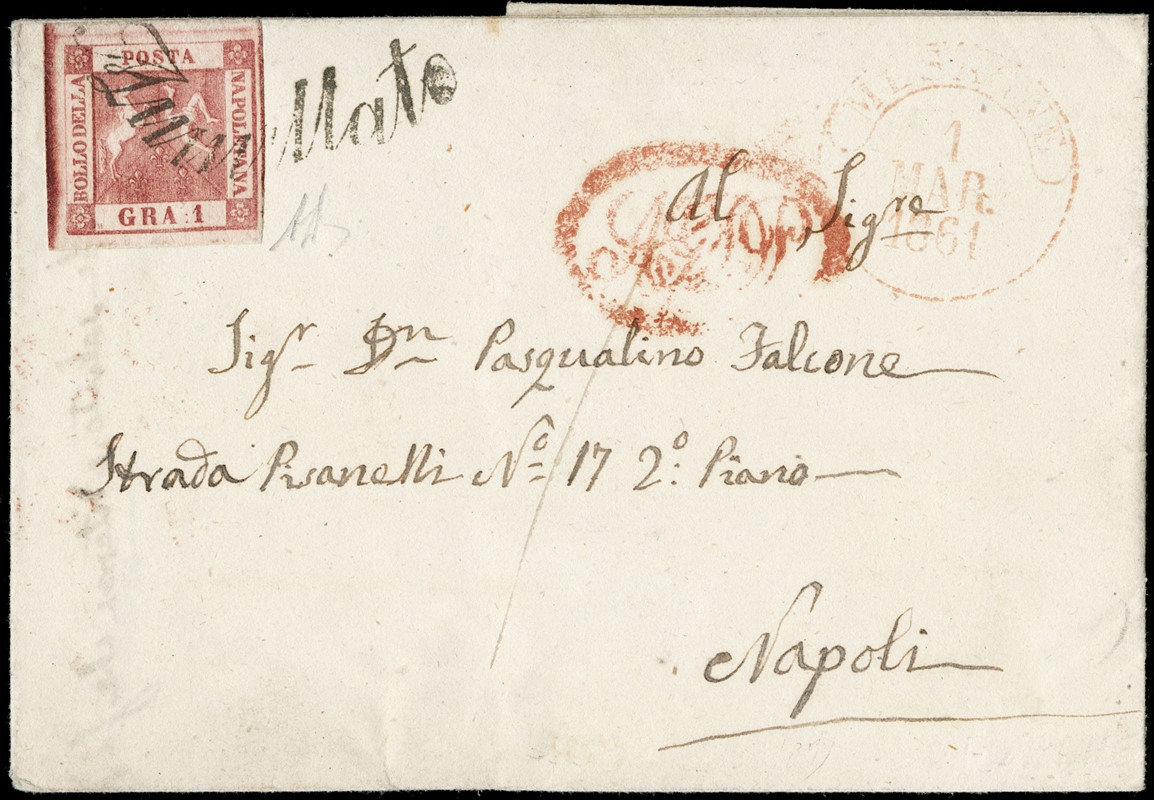 POSTA
BOLLO DELLA
NAPOLETANA
GRA 1
Annullato
1
MAR.
1861
Al Sigre
Sigr Dn Pasqualino Falcone
Strada Pisanelli No 17 2o: Piano
Napoli